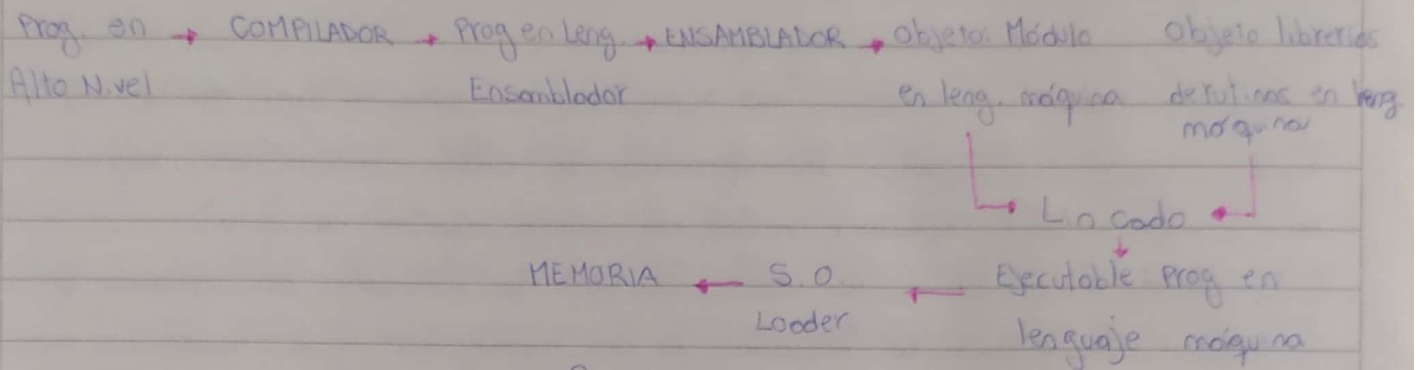 Prog. en → COMPILADOR → Prog en Leng. → ENSAMBLADOR → Objeto: Módulo Objeto librerías
Alto Nivel Ensamblador en leng. máquina de rutinas en leng
máquina
Lincado
MEMORIA ← S.O. ← Ejecutable Prog en
Loader lenguaje máquina